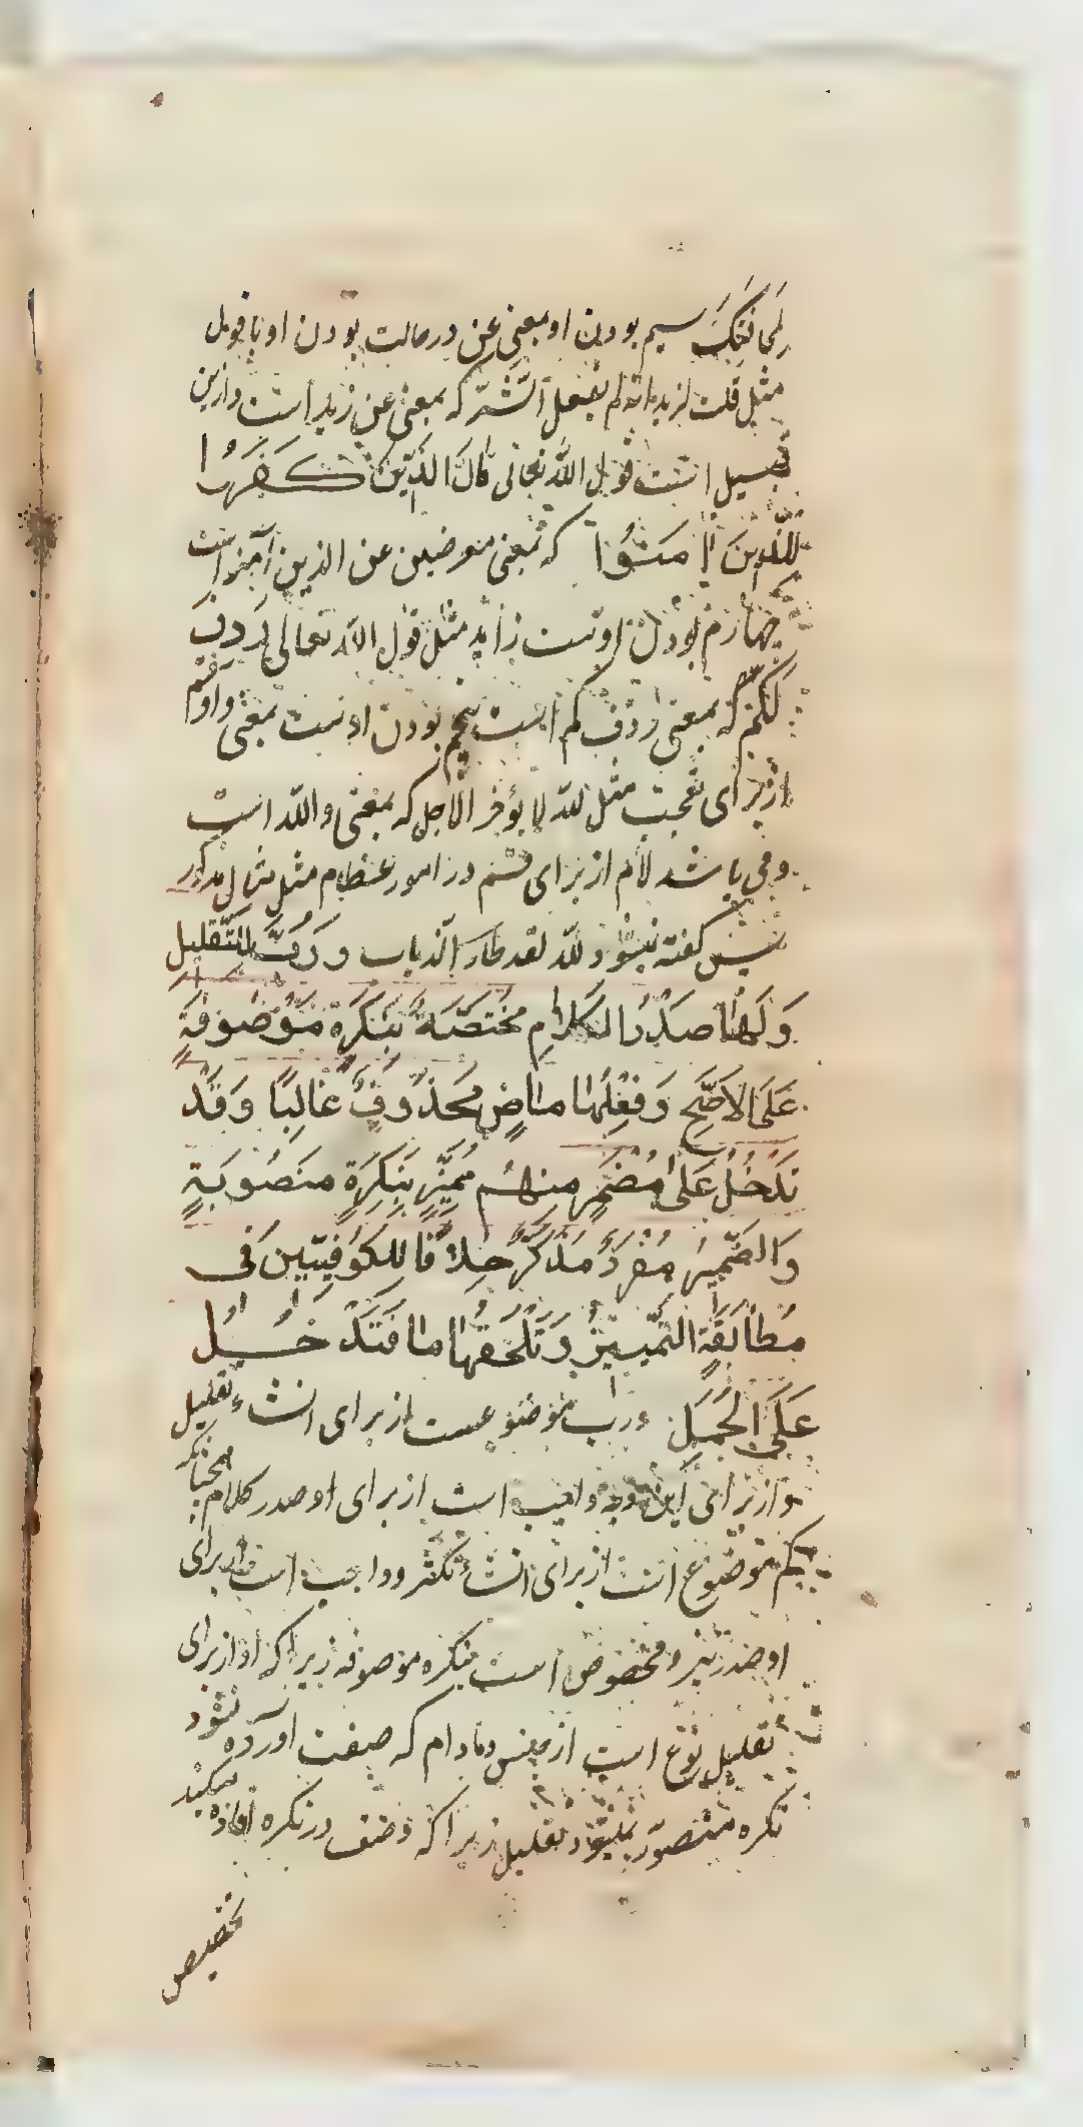 سیم بودن او بمعنی عن در حالت بودن او با قول
مثل قلت لزید انه لم یفعل الشر که بمعنی عن زید است و ازین
قبیل است قول الله تعالی قال الذین کفروا
للذین اٰمنوا که بمعنی معرضین عن الذین آمنوا است
چهارم بودن اوست زاید مثل قول الله تعالی ردف
لکم که بمعنی ردف کم است پنجم بودن اوست بمعنی واو قسم
از برای تعجب مثل لله لا یؤخر الاجل که بمعنی والله است
و می باشد لام از برای قسم در امور عظام مثل مثال مذکور
پس گفته نیشود لله لقد طار الذباب وَرُبَّ لِلتَّقلیلِ
وَلَهٰا صَدْرُ الکَلامِ مُختَصَّةٌ بِنَکِرَةٍ مَوْصُوفَةٍ
عَلَی الاَصَحِّ وَفِعْلُهٰا ماضٍ مَحْذُوفٌ غالِبًا وَقَدْ
تَدْخُلُ عَلیٰ مُضْمَرٍ مُبْهَمٍ مُمَیَّزٍ بِنَکِرَةٍ مَنصُوبَةٍ
وَالضَّمیرُ مُفْرَدٌ مُذَکَّرٌ خِلافًا لِلکُوفِیّینَ فی
مُطابَقَةِ التَّمْییزِ وَتَلْحَقُهٰا ما فَتَدْخُلُ
عَلَی الجُمَلِ و رب موضوعست از برای انشاء تقلیل
و از برای این وجه واجب است از برای او صدر کلام همچنانکه
کم موضوع است از برای انشاء تکثر و واجب است از برای
او صدر نیز و مخصوص است بنکره موصوفه زیرا که او از برای
تقلیل نوع است از جنس و مادام که صفت آورده نشود
نکره متصور نمیشود تقلیل زیرا که وصف در نکره افاده میکند
تخصیص